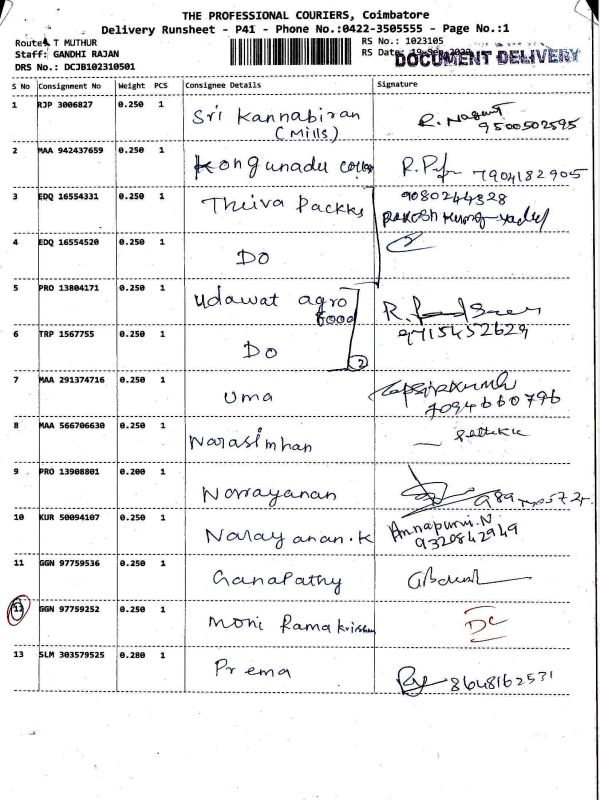 THE PROFESSIONAL COURIERS, Coimbatore
Delivery Runsheet - P41 - Phone No.:0422-3505555 - Page No.:1
Route: T MUTHUR
RS No.: 1023105
Staff: GANDHI RAJAN
RS Date:
DOCUMENT DELIVERY
DRS No.: DCJB102310501
S No Consignment No Weight PCS Consignee Details Signature
1 RJP 3006827 0.250 1 Sri Kannabiran
(Mills)
9500502595
2 MAA 942437659 0.250 1 Kongunadu
7904182905
3 EDQ 16554331 0.250 1 Theiva Packks
9080244328
4 EDQ 16554520 0.250 1 DO
5 PRO 13804171 0.250 1 Udawat agro
food
6 TRP 1567755 0.250 1 DO
9715452629
2
7 MAA 291374716 0.250 1 Uma
7094660796
8 MAA 566706630 0.250 1 Narasimhan
9 PRO 13908801 0.200 1 Narayanan
10 KUR 50094107 0.250 1 Narayanan.K
Annapurni.N
9320842949
11 GGN 97759536 0.250 1 Ganapathy
12 GGN 97759252 0.250 1 Moni Ramakrishnan
DC
13 SLM 303579525 0.280 1 Prema
8648162531